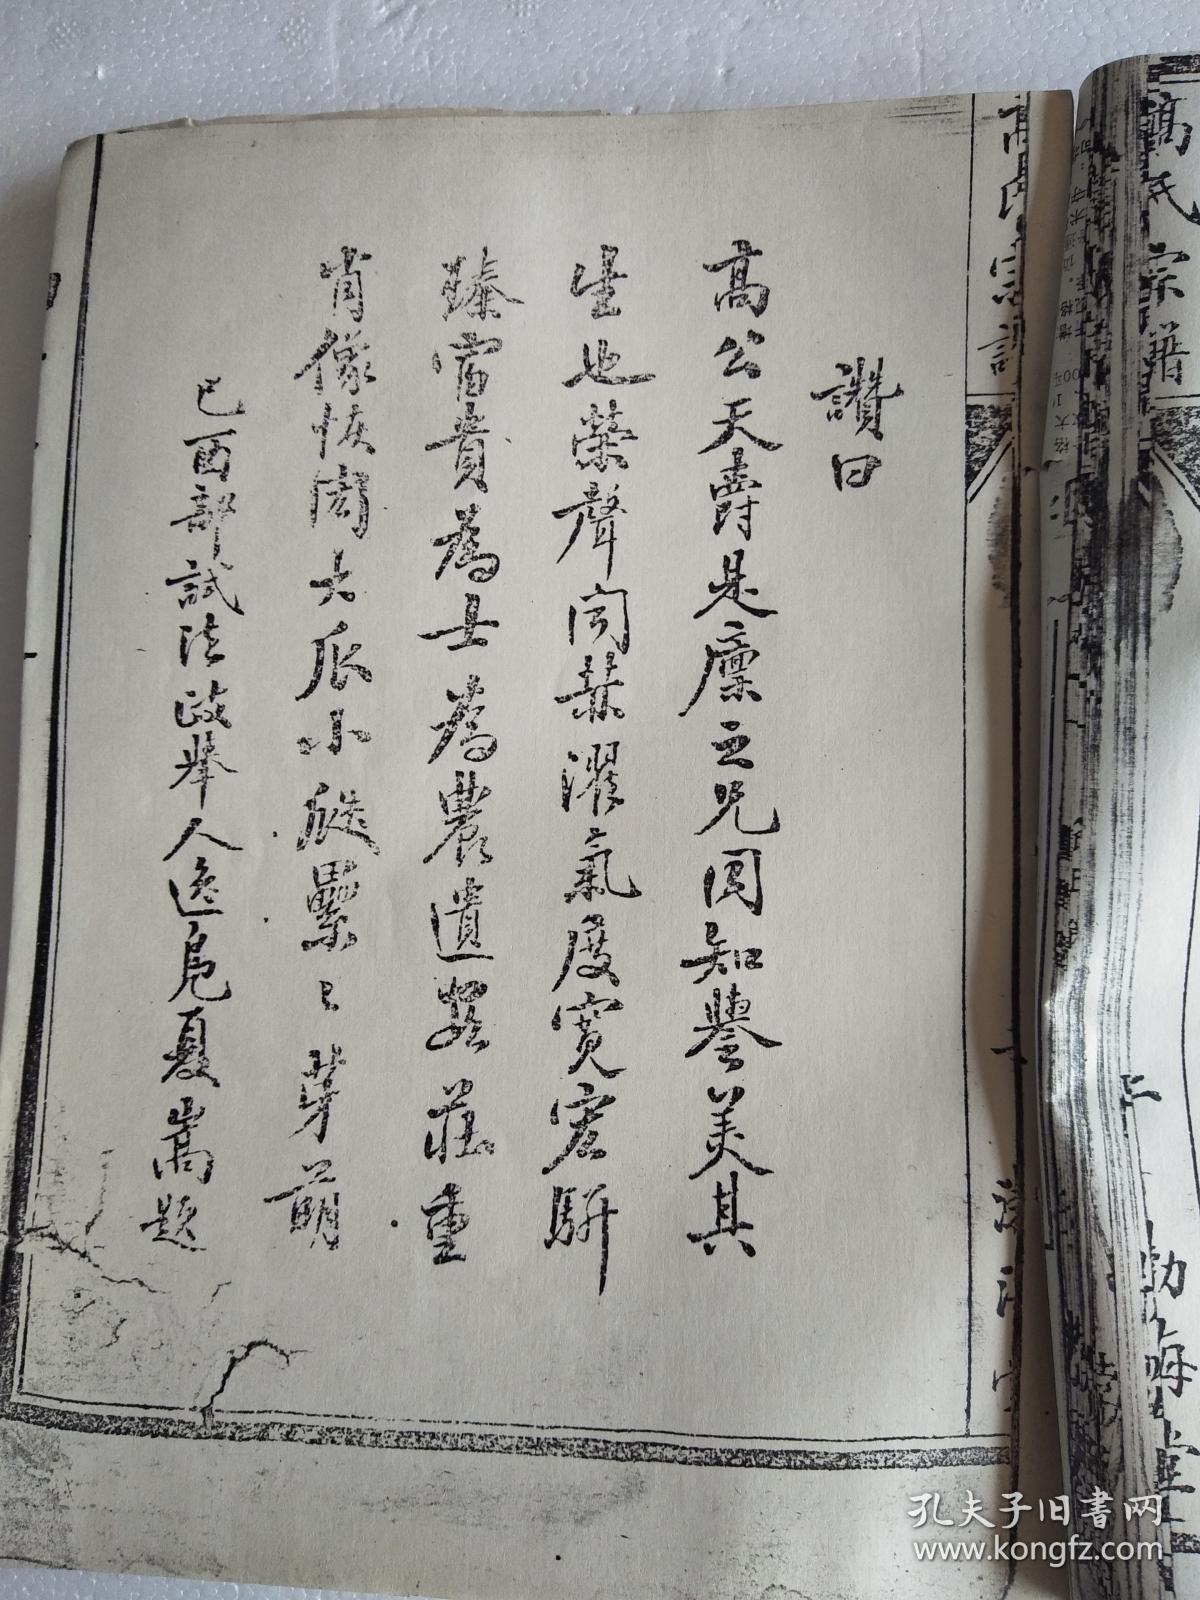 讚曰
高公天爵是廩之兄因知譽美其
生也榮聲聞赫濯氣度寬宏駢
臻富貴為士為農遺容莊重
肖像恢閎大瓜小瓞纍々芽萌
己酉部試法政舉人逸凫夏嵩題
高氏宗譜
高氏宗譜
敦海堂
孔夫子旧书网
www.kongfz.com